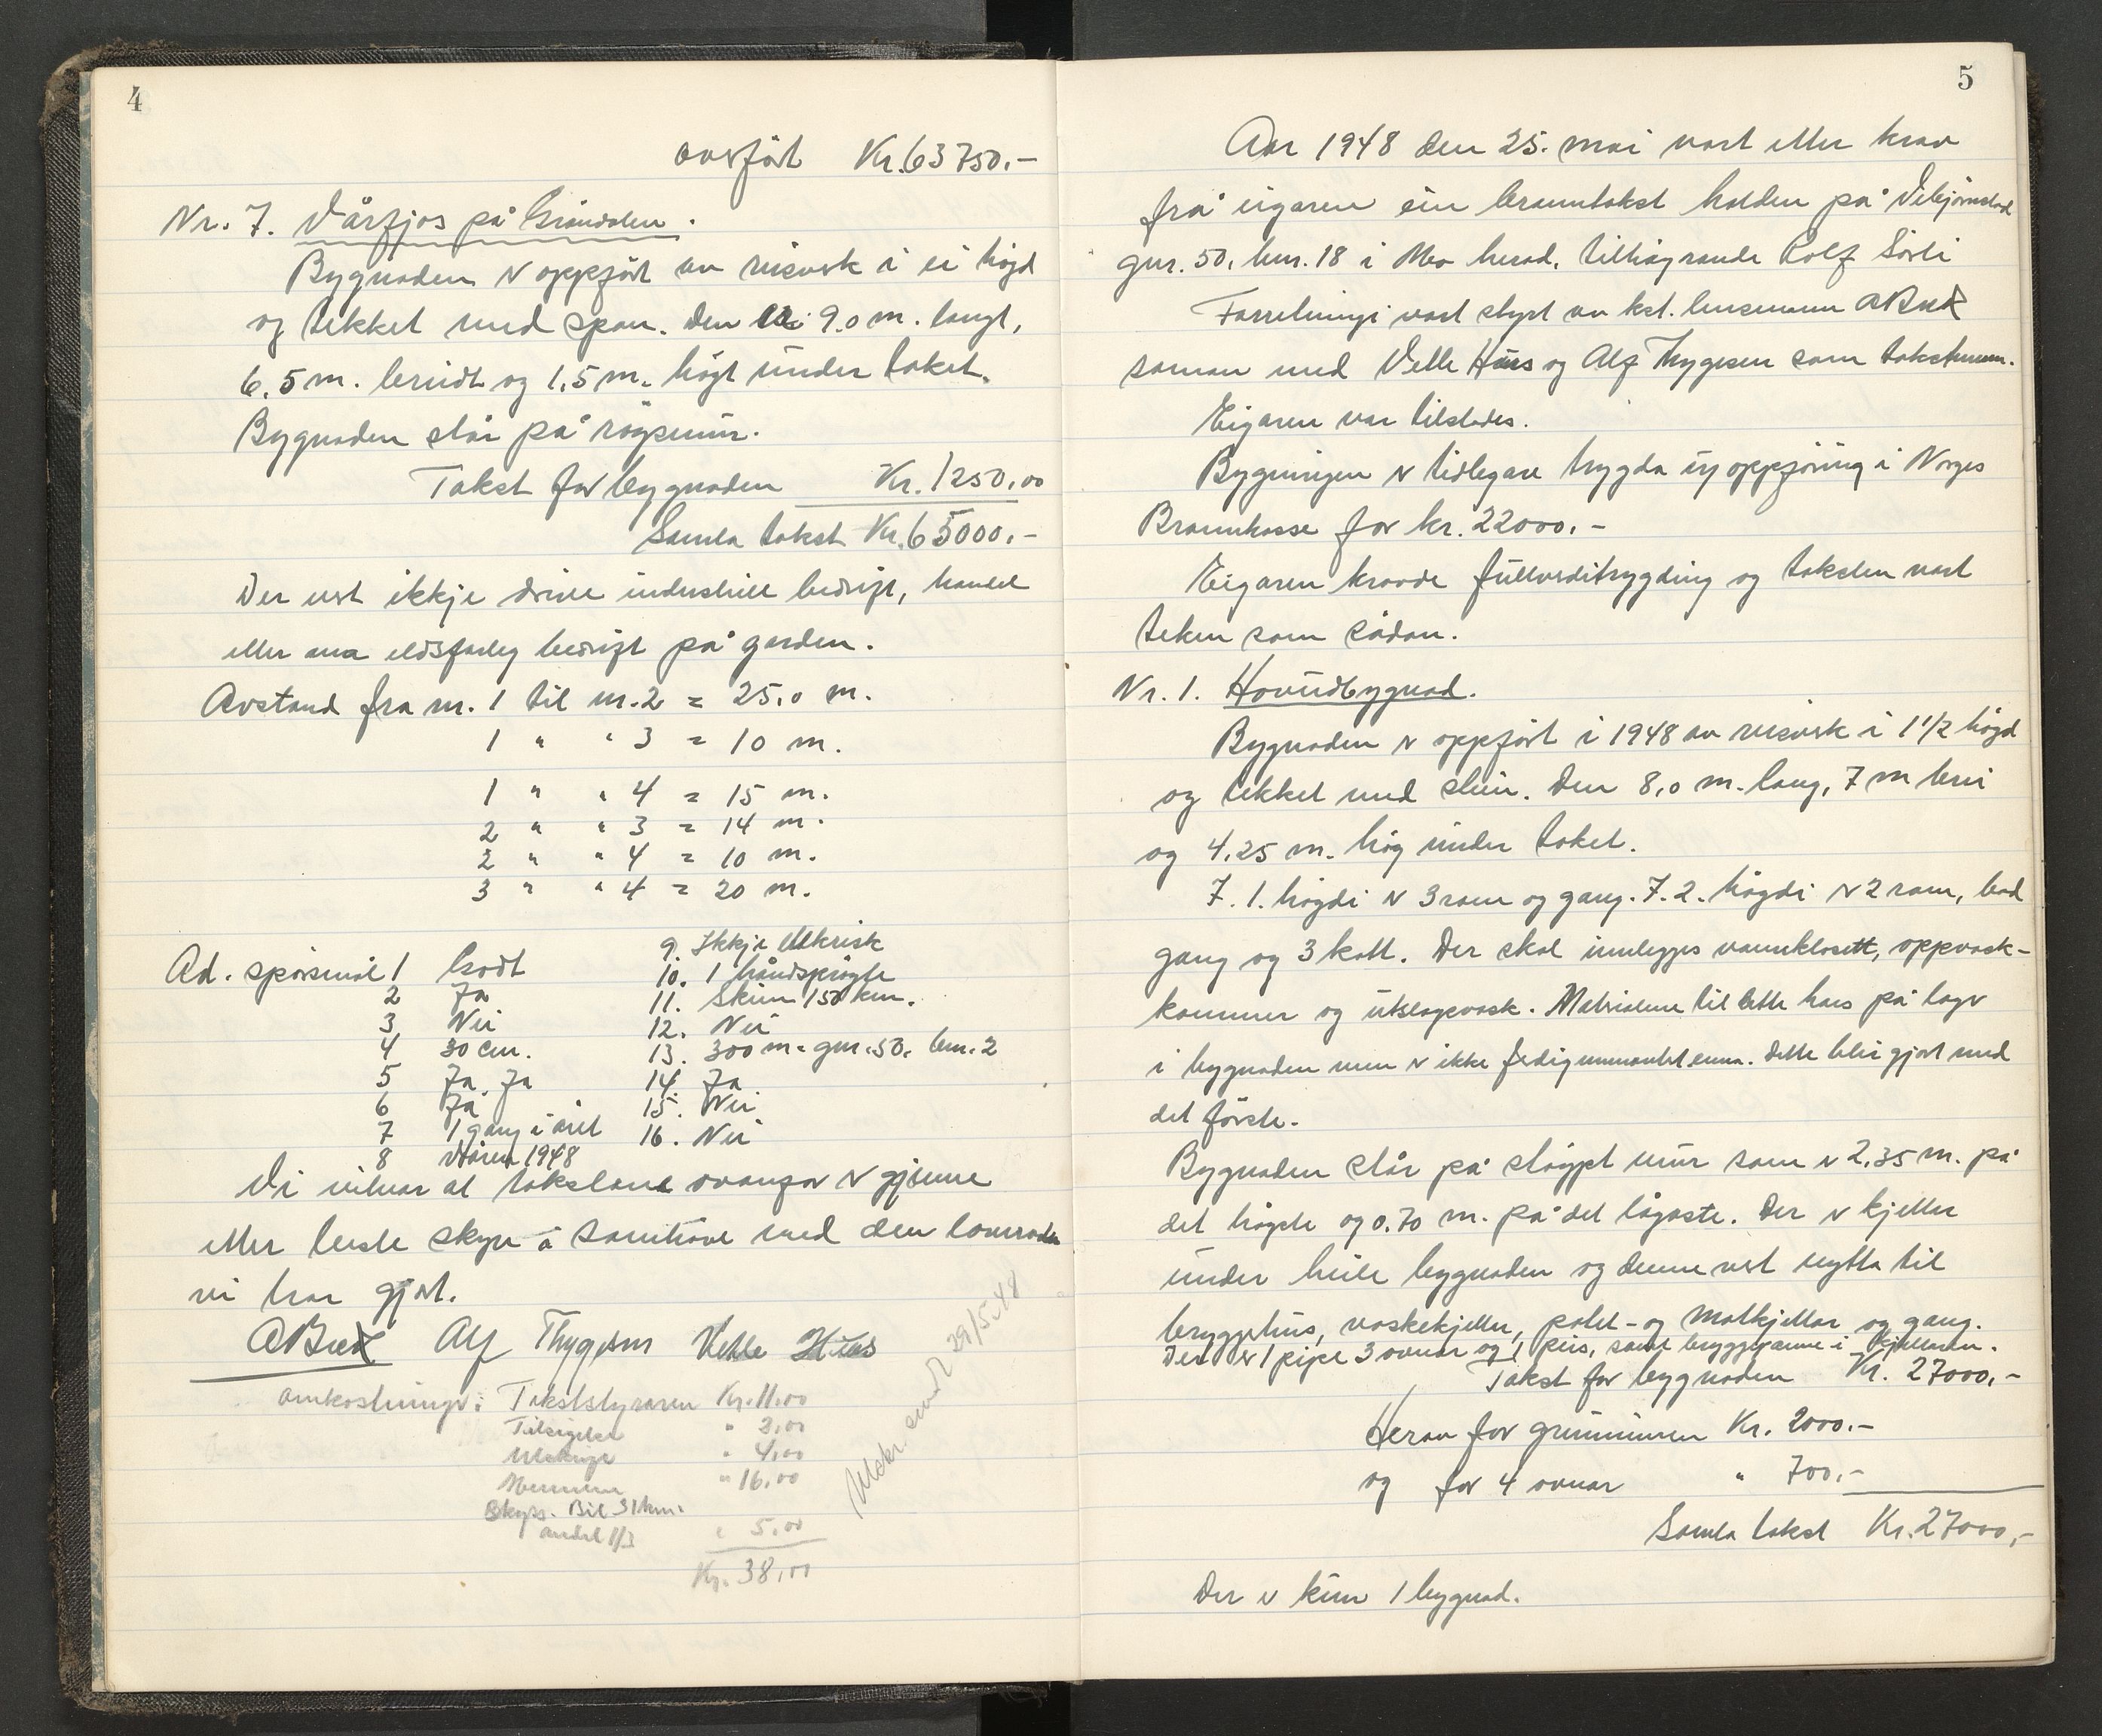 4
overfört Kr. 63750.-
Nr. 7. Vårfjos på Gröndalen.
Bygnaden er oppfört av reisverk i ei högd
og tekket med spon. Den er 9.0 m. langt,
6,5 m. breidt og 1,5 m. högt under taket.
Bygnaden står på röysmur.
Takst for bygnaden Kr. 1250,00
Samla takst Kr. 65000.-
Der vert ikkje drive industriell bedrift, handel
eller ana eldsfarleg bedrift på garden.
Avstand fra nr. 1 til nr. 2 = 25,0 m.
1 " " 3 = 10 m.
1 " " 4 = 15 m.
2 " " 3 = 14 m.
2 " " 4 = 10 m.
3 " " 4 = 20 m.
Ad. spörsmål 1 Godt
2 Ja
3 Nei
4 30 cm.
5 Ja, Ja
6 Ja
7 1 gang i året
8 Våren 1948
9. Ikkje elektrisk
10. 1 håndspröyte
11. Skien 150 km.
12. Nei
13. 300 m. gnr. 50. bnr. 2
14. Ja
15. Nei
16. Nei
Vi vitnar at takstane ovanfor er gjevne
etter beste skyn å samhøve med den lovnaden
vi har gjort.
ABuet Alf Thygesen Vetle Hus
Omkostninger: Takststyraren Kr. 11.00
Tilsigelse " 2,00
Utskrift " 4,00
Mennene " 16,00
Skyss. Bil 31 km.
andel 1/3 " 5,00
Kr. 38,00
Utskr. sendt 29/5 48
5
Aar 1948 den 25. mai vart etter krav
frå eigaren ein branntakst halden på Vibjörnslid
gnr. 50, bnr. 18 i Mo herad, tilhøyrande Rolf Sörli
Forretningi vart styrt av kst. lensmann ABuet
saman med Vetle Hus og Alf Thygesen som takstmenn.
Eigaren var tilstedes.
Bygningen er tidlegare trygda u/ oppföring i Norges
Brannkasse for kr. 22000.-
Eigaren kravde fullverditrygding og taksten vart
teken som sådan.
Nr. 1. Hovudbygnad.
Bygnaden er oppfört i 1948 av reisverk i 1 1/2 högd
og tekket med stein. Den 8,0 m. lang, 7 m brei
og 4,25 m. hög under taket.
I. 1. högdi er 3 rom og gang. I. 2. högdi er 2 rom, bad
gang og 3 kott. Der skal innlegges vannklosett, oppvask-
kommer og utslagsvask. Materialene til dette haes på lager
i bygnaden men er ikke ferdigmonntert enna. Dette blir gjort med
det förste.
Bygnaden står på stöypt mur som er 2,35 m. på
det högste og 0.70 m. på det lågaste. Der er kjeller
under heile bygnaden og denne vert nytta til
bryggehus, vaskekjeller, potet- og matkjellar og gang.
Der er 1 pipe 3 ovnar og 1 peis, samt bryggepanne i kjelleren.
Takst for bygnaden Kr. 27000,-
Herav for grunnmuren Kr. 2000.-
og for 4 ovnar " 700,-
Samla takst Kr. 27000,-
Der er kun 1 bygnad.